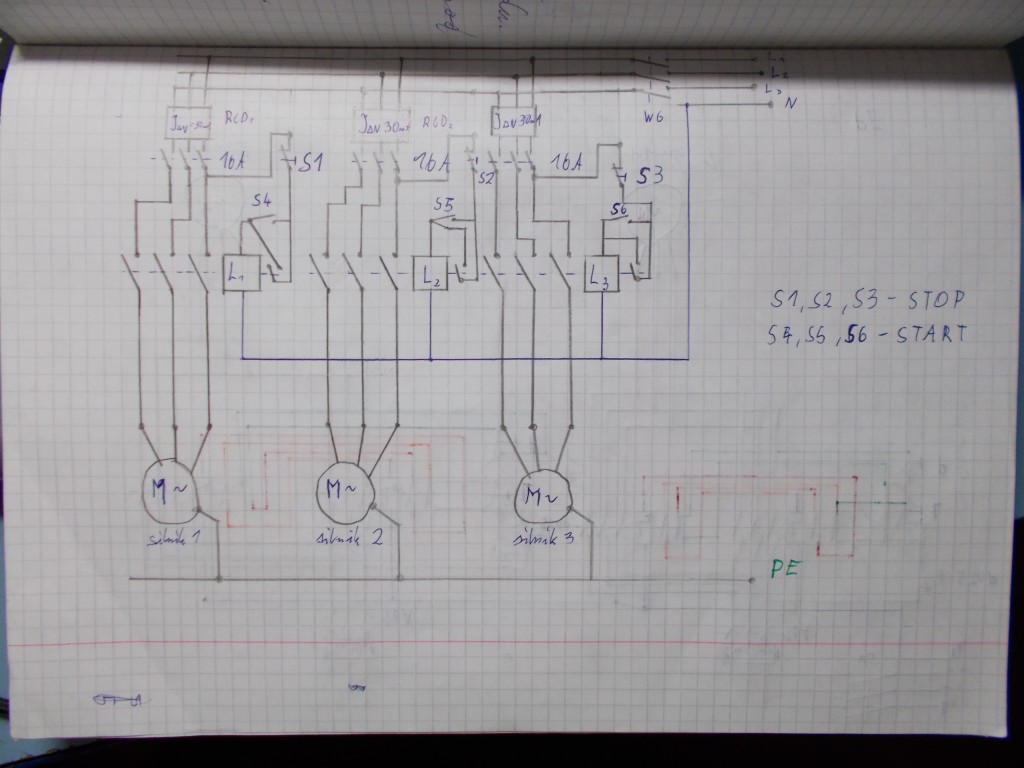 L2
L3
N
W6
RCD1
IΔN 30mA
RCD2
IΔN 30mA
16A
S1
16A
S2
16A
S3
S4
S5
S6
L1
L2
L3
S1, S2, S3 - STOP
S4, S5, S6 - START
M~
M~
M~
silnik 1
silnik 2
silnik 3
PE